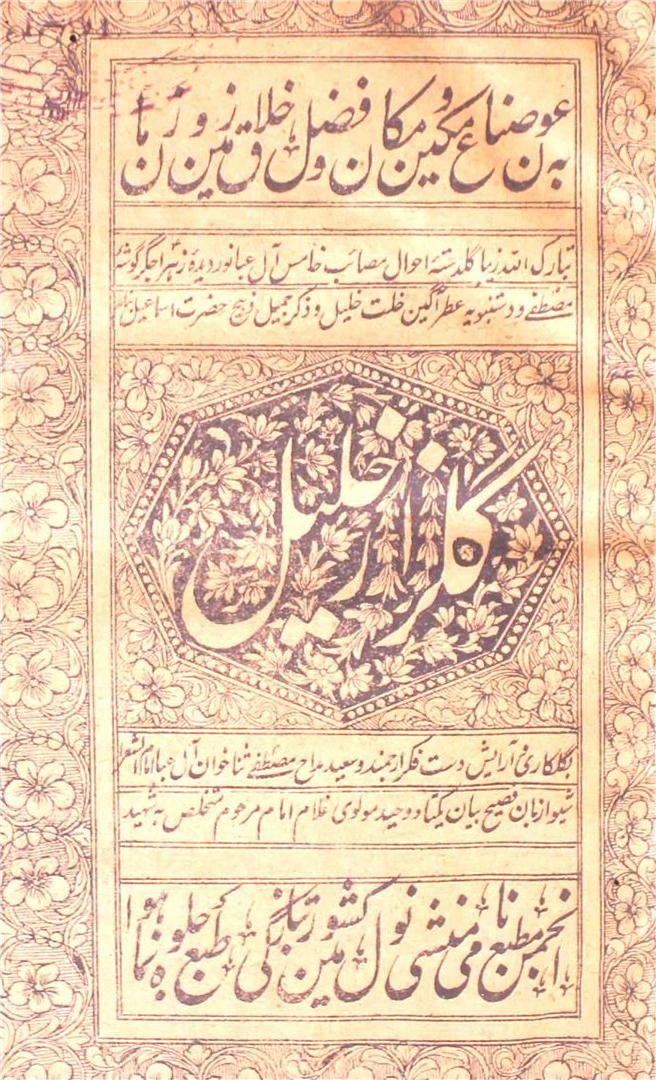 بعون صناع مکین و مکان و فضل خلاق زمین و زبان
تبارک اللہ زیبا گلدستۂ احوال مصائب خامس آل عبا نور دیدۂ زہرا جگر گوشۂ
مصطفےٰ و دستنبویہ عطر آگین خلت خلیل و ذکر جمیل ذبیح حضرت اسماعیل
گلزار خلیل
بگلکاری آرایش دست فکر ارجمند و سعید مداح مصطفےٰ ثنا خوان آل عبا امام الشعرا
شیوا زبان فصیح بیان یکتا و وحید مولوی غلام امام مرحوم متخلص بہ شہید
انجمن مطبع نامی منشی نول کشور مین بتازگی طبع ہو کے جلوہ نما ہوا